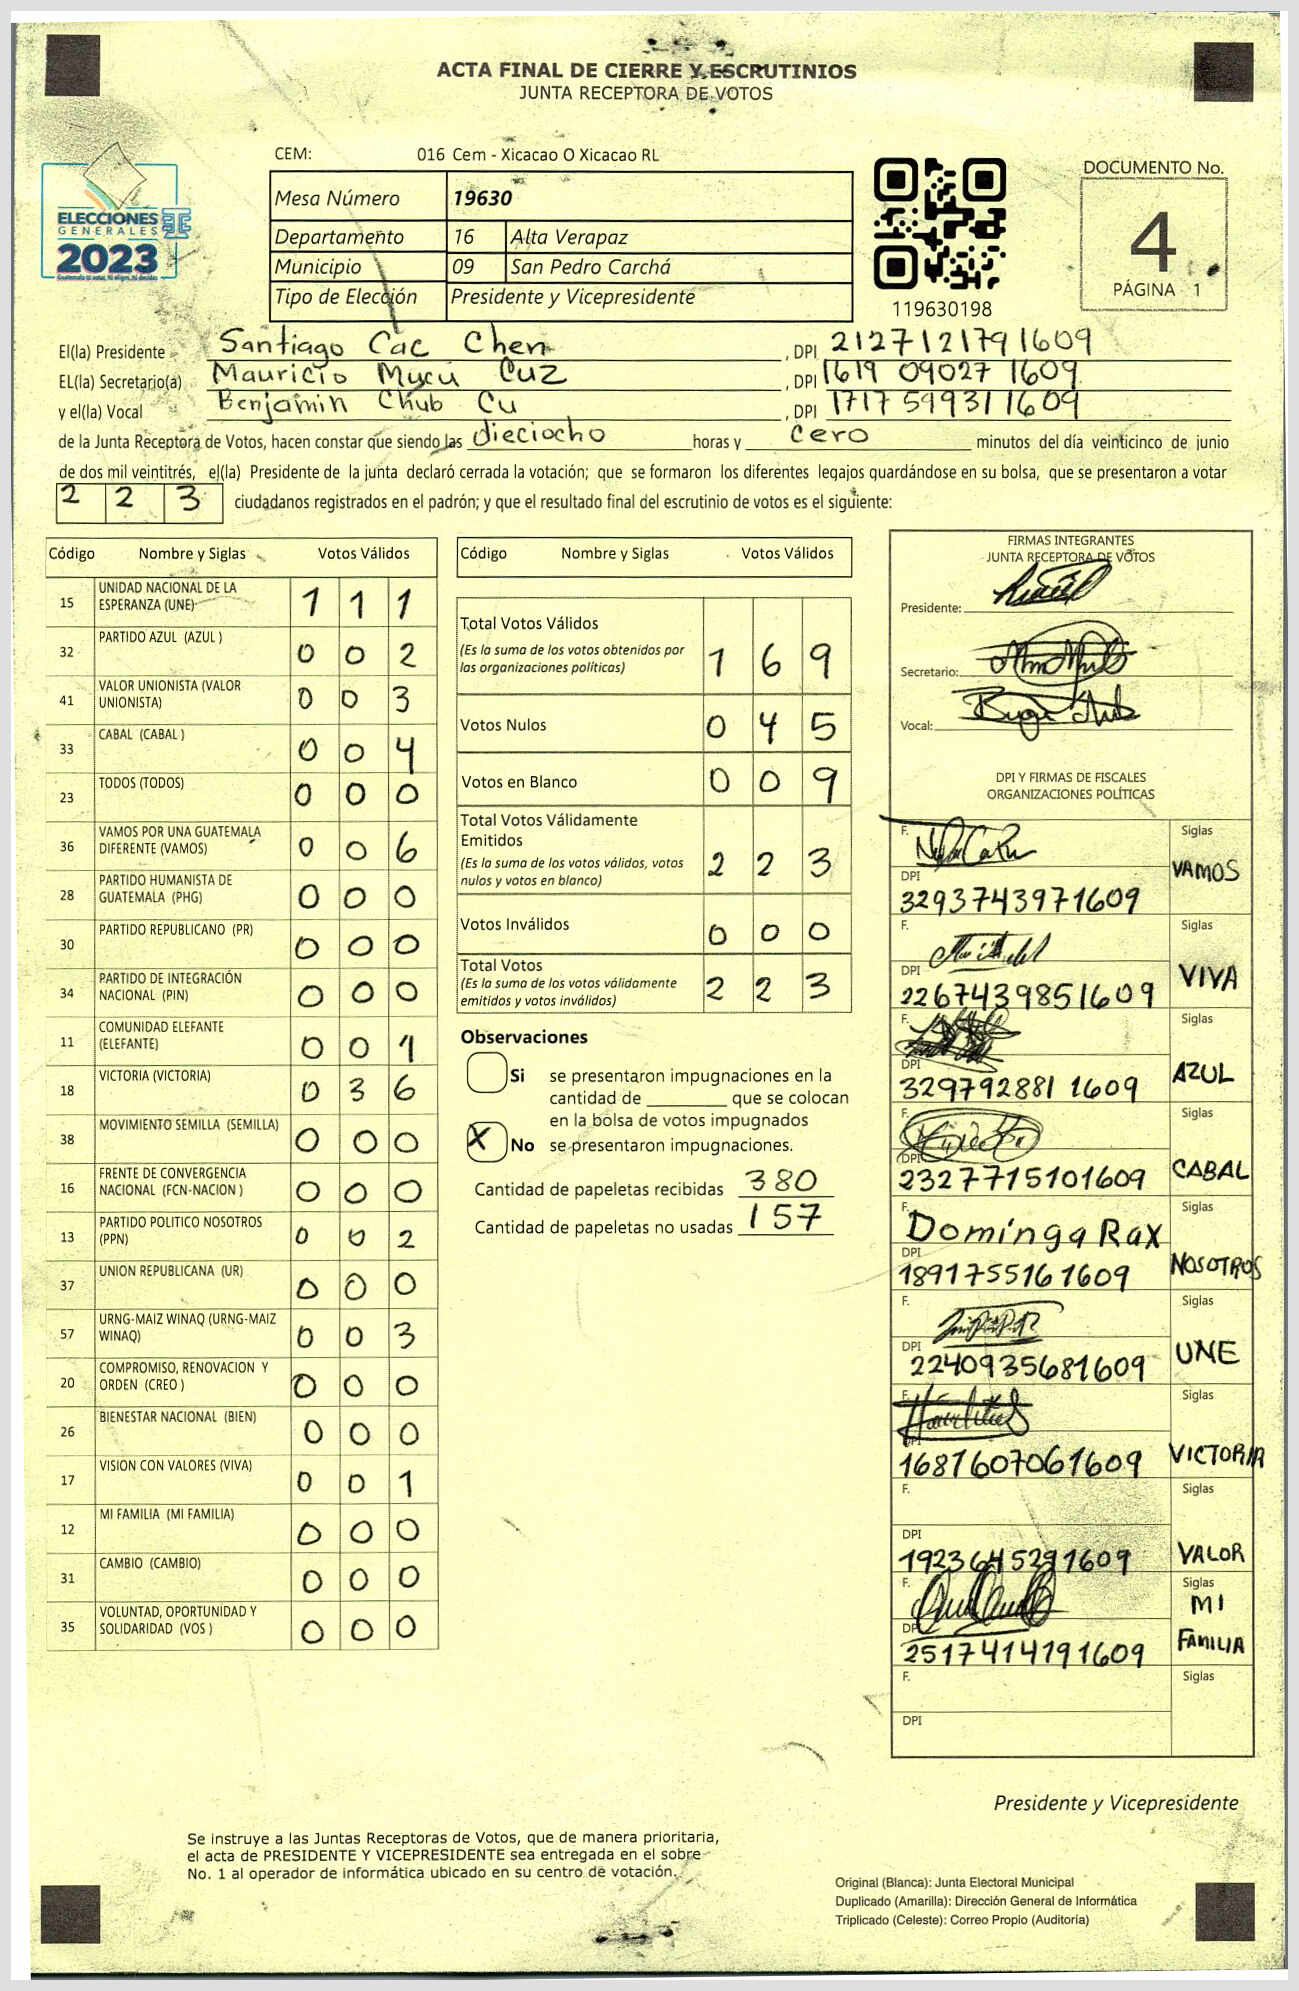 ACTA FINAL DE CIERRE Y ESCRUTINIOS
JUNTA RECEPTORA DE VOTOS
CEM: 016 Cem - Xicacao O Xicacao RL
ELECCIONES
GENERALES
2023
Mesa Número 19630
Departamento 16 Alta Verapaz
Municipio 09 San Pedro Carchá
Tipo de Elección Presidente y Vicepresidente
119630198
DOCUMENTO No.
4
PÁGINA 1
El(la) Presidente Santiago Cac Chen, DPI 2127121791609
EL(la) Secretario(a) Mauricio Mucú Cuz, DPI 1619 09027 1609
y el(la) Vocal Benjamin Chub Cu, DPI 1717 59931 1609
de la Junta Receptora de Votos, hacen constar que siendo las dieciocho horas y cero minutos del día veinticinco de junio
de dos mil veintitrés, el(la) Presidente de la junta declaró cerrada la votación; que se formaron los diferentes legajos guardándose en su bolsa, que se presentaron a votar
2 2 3 ciudadanos registrados en el padrón; y que el resultado final del escrutinio de votos es el siguiente:
Código Nombre y Siglas Votos Válidos
15 UNIDAD NACIONAL DE LA ESPERANZA (UNE) 1 1 1
32 PARTIDO AZUL (AZUL ) 0 0 2
41 VALOR UNIONISTA (VALOR UNIONISTA) 0 0 3
33 CABAL (CABAL ) 0 0 4
23 TODOS (TODOS) 0 0 0
36 VAMOS POR UNA GUATEMALA DIFERENTE (VAMOS) 0 0 6
28 PARTIDO HUMANISTA DE GUATEMALA (PHG) 0 0 0
30 PARTIDO REPUBLICANO (PR) 0 0 0
34 PARTIDO DE INTEGRACIÓN NACIONAL (PIN) 0 0 0
11 COMUNIDAD ELEFANTE (ELEFANTE) 0 0 1
18 VICTORIA (VICTORIA) 0 3 6
38 MOVIMIENTO SEMILLA (SEMILLA) 0 0 0
16 FRENTE DE CONVERGENCIA NACIONAL (FCN-NACION ) 0 0 0
13 PARTIDO POLITICO NOSOTROS (PPN) 0 0 2
37 UNION REPUBLICANA (UR) 0 0 0
57 URNG-MAIZ WINAQ (URNG-MAIZ WINAQ) 0 0 3
20 COMPROMISO, RENOVACION Y ORDEN (CREO ) 0 0 0
26 BIENESTAR NACIONAL (BIEN) 0 0 0
17 VISION CON VALORES (VIVA) 0 0 1
12 MI FAMILIA (MI FAMILIA) 0 0 0
31 CAMBIO (CAMBIO) 0 0 0
35 VOLUNTAD, OPORTUNIDAD Y SOLIDARIDAD (VOS ) 0 0 0
Código Nombre y Siglas Votos Válidos
Total Votos Válidos
(Es la suma de los votos obtenidos por
las organizaciones políticas) 1 6 9
Votos Nulos 0 4 5
Votos en Blanco 0 0 9
Total Votos Válidamente
Emitidos
(Es la suma de los votos válidos, votos
nulos y votos en blanco) 2 2 3
Votos Inválidos 0 0 0
Total Votos
(Es la suma de los votos válidamente
emitidos y votos inválidos) 2 2 3
Observaciones
Si se presentaron impugnaciones en la
cantidad de ________ que se colocan
en la bolsa de votos impugnados
X No se presentaron impugnaciones.
Cantidad de papeletas recibidas 380
Cantidad de papeletas no usadas 157
FIRMAS INTEGRANTES
JUNTA RECEPTORA DE VOTOS
Presidente:
Secretario:
Vocal:
DPI Y FIRMAS DE FISCALES
ORGANIZACIONES POLÍTICAS
F. Siglas
DPI VAMOS
3293743971609
F. Siglas
DPI VIVA
2267439851609
F. Siglas
DPI AZUL
329792881 1609
F. Siglas
DPI CABAL
2327715101609
F. Siglas
Dominga Rax
DPI NOSOTROS
1891755161609
F. Siglas
DPI UNE
2240935681609
F. Siglas
DPI VICTORIA
1681607061609
F. Siglas
DPI VALOR
1923645291609
F. Siglas
MI
DPI FAMILIA
2517414191609
F. Siglas
DPI
Presidente y Vicepresidente
Se instruye a las Juntas Receptoras de Votos, que de manera prioritaria,
el acta de PRESIDENTE Y VICEPRESIDENTE sea entregada en el sobre
No. 1 al operador de informática ubicado en su centro de votación.
Original (Blanca): Junta Electoral Municipal
Duplicado (Amarilla): Dirección General de Informática
Triplicado (Celeste): Correo Propio (Auditoría)